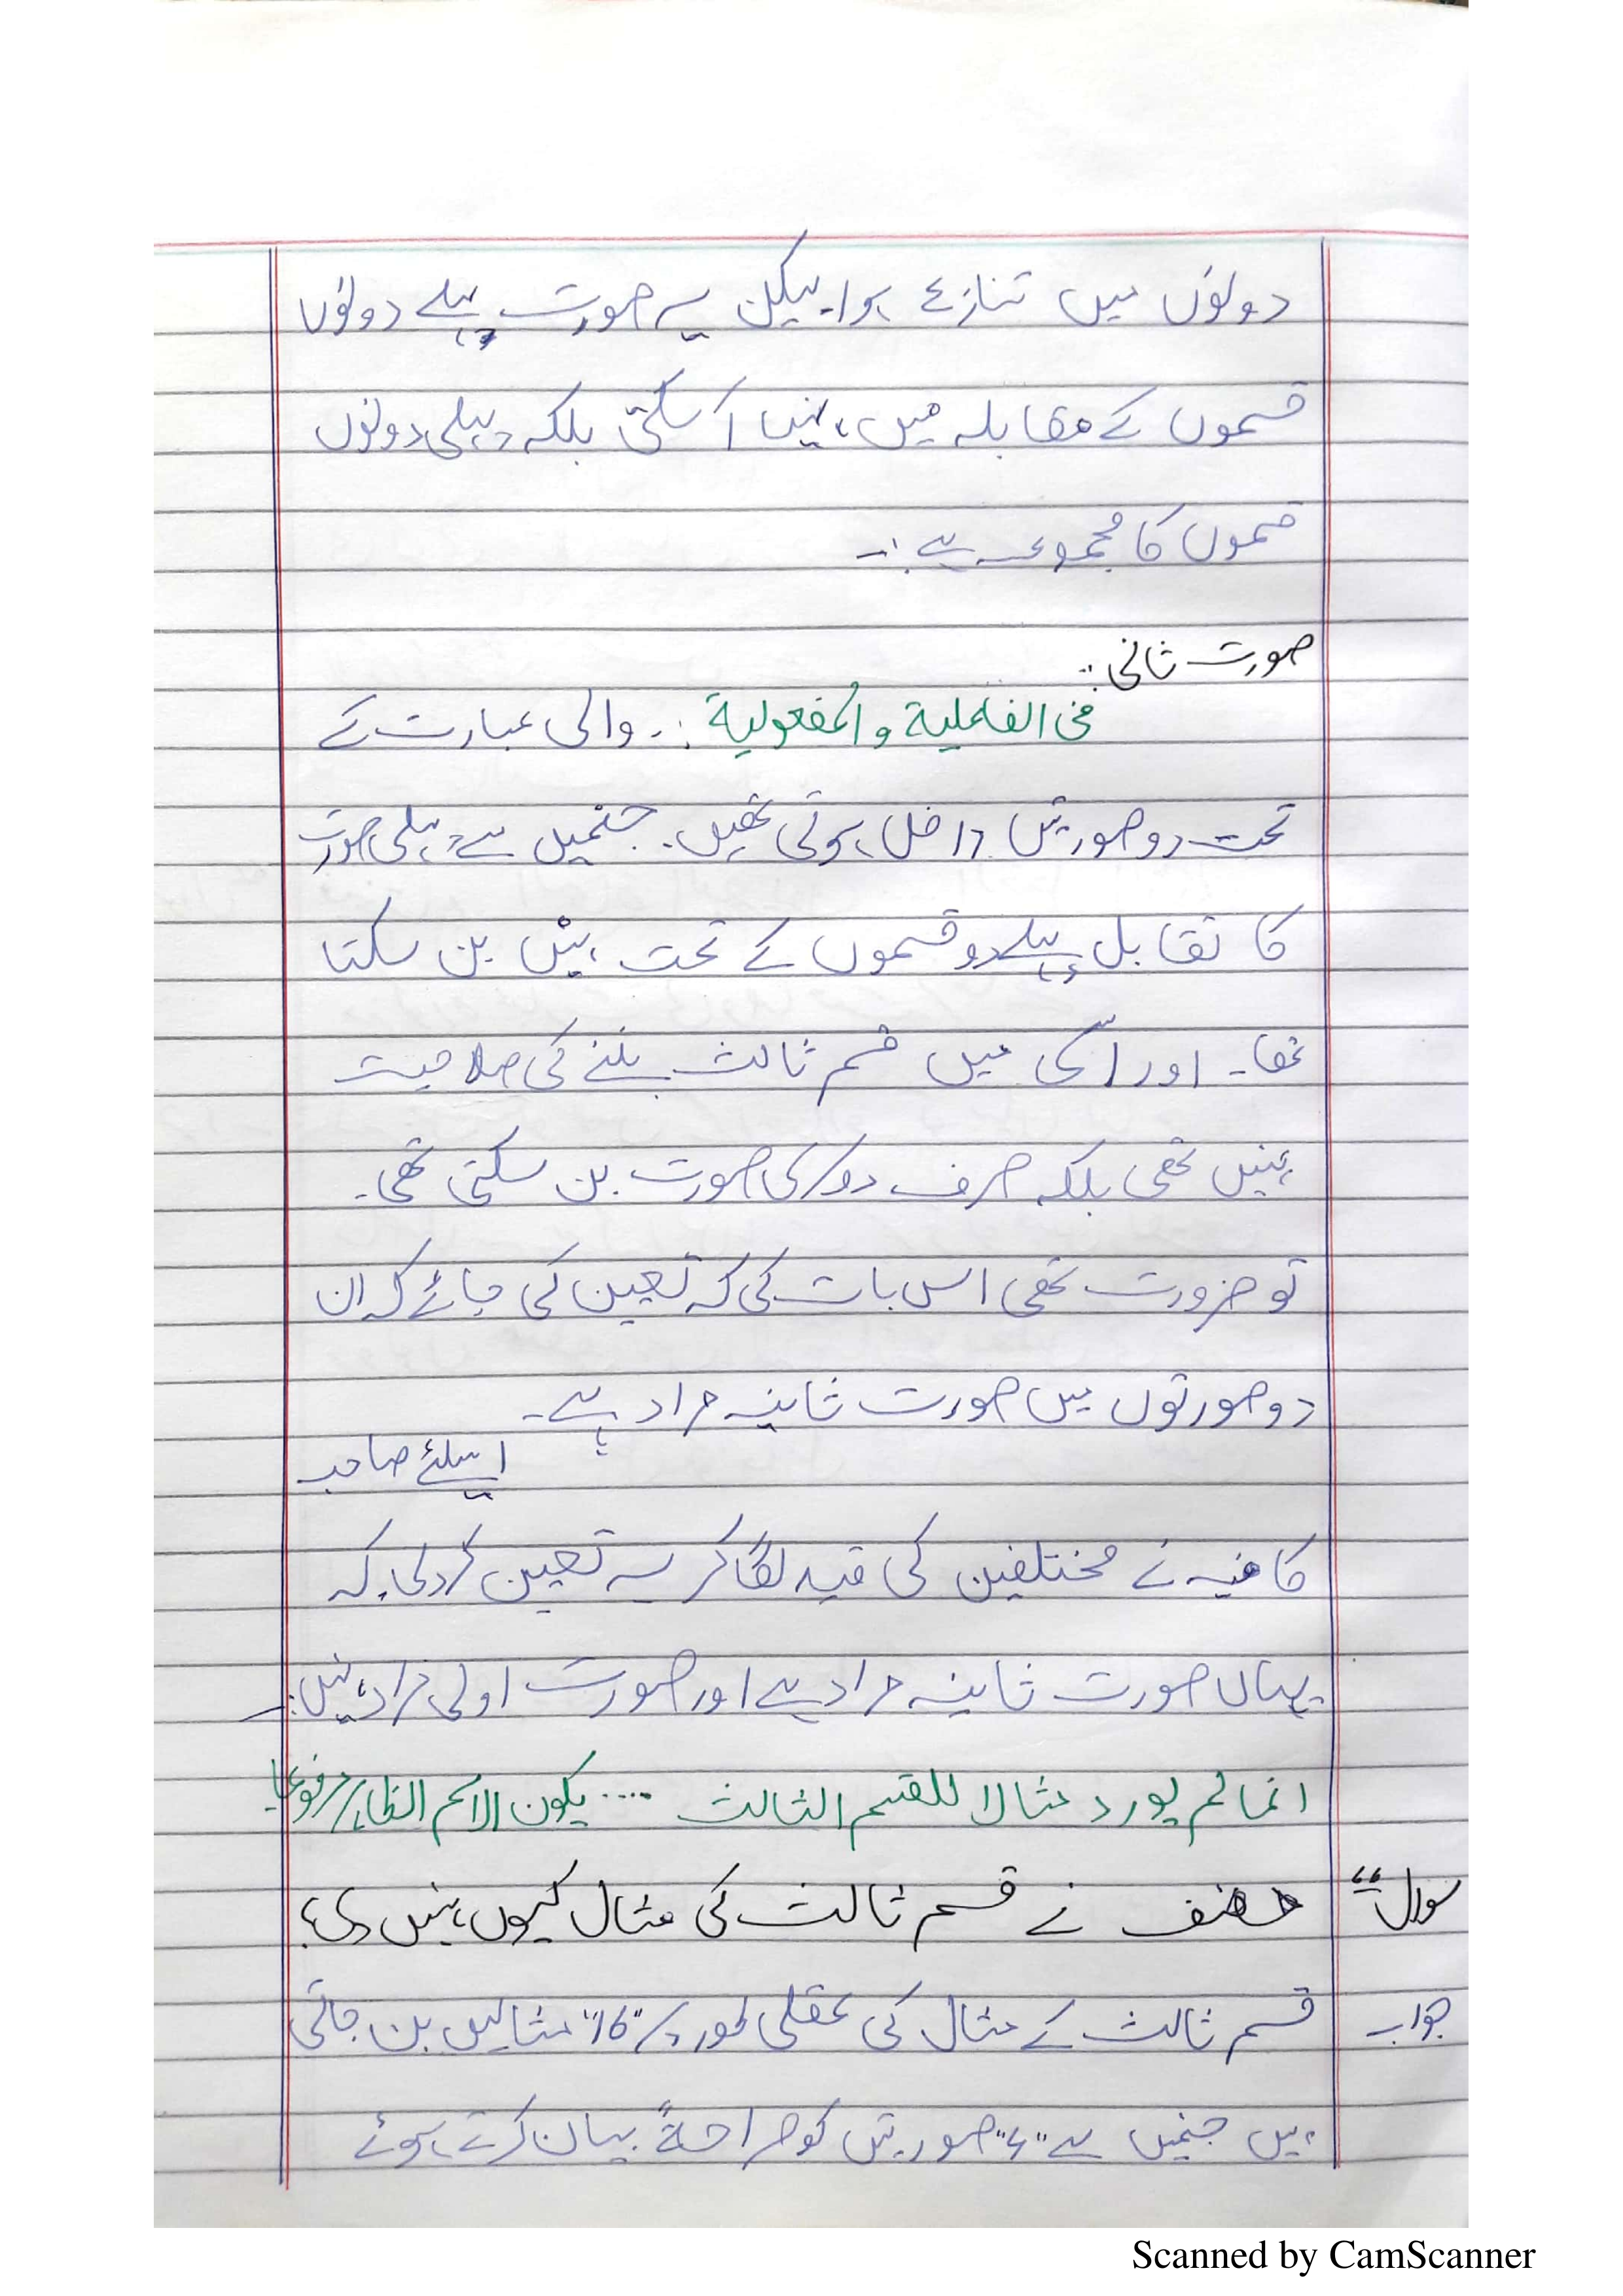 دونوں میں تنازع ہوا۔ لیکن یہ صورت پہلے دونوں
قسموں کے مقابلہ میں نہیں آ سکتی بلکہ پہلی دونوں
قسموں کا مجموعہ ہے :۔
صورت ثانی :
فی الفاعلیۃ والمفعولیۃ :۔ والی عبارت کے
تحت دو صورتیں داخل ہوتی تھیں۔ جنمیں سے پہلی صورت
کا تقابل پہلے دو قسموں کے تحت نہیں بن سکتا
تھا۔ اور اسکی میں قسم ثالث بننے کی صلاحیت
نہیں تھی بلکہ صرف دوسری صورت بن سکتی تھی۔
تو ضرورت تھی اس بات کی کہ تعین کی جائے کہ ان
دو صورتوں میں صورت ثانیہ مراد ہے۔
اسلئے صاحب
کافیہ نے مختلفین کی قید لگا کر یہ تعین کردی کہ
یہاں صورت ثانیہ مراد ہے اور صورت اولی مراد نہیں :۔
انما لم یورد مثالا للقسم الثالث .... یکون الاسم الظاہر مرفوعا
سوال " مصنف نے قسم ثالث کی مثال کیوں نہیں دی؟
جواب قسم ثالث کے مثال کی عقلی طور پر "16" مثالیں بن جاتی
ہیں جنمیں سے صورتیں کو صراحۃً بیان کرتے ہوئے
Scanned by CamScanner